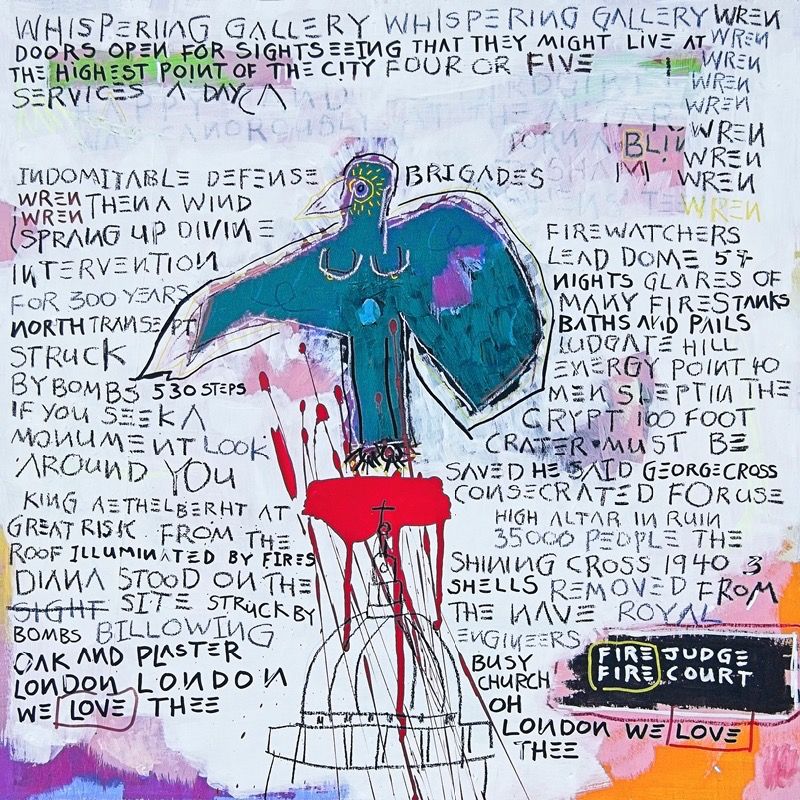 WHISPERING GALLERY WHISPERING GALLERY WREN
DOORS OPEN FOR SIGHTSEEING THAT THEY MIGHT LIVE AT WREN
THE HIGHEST POINT OF THE CITY FOUR OR FIVE WREN
SERVICES A DAY WREN
WREN
WREN
BLIN WREN
WREN
WREN
INDOMITABLE DEFENSE BRIGADES
WREN THEN A WIND
WREN
SPRANG UP DIVINE
INTERVENTION
FOR 300 YEARS
NORTH TRANSEPT
STRUCK
BY BOMBS 530 STEPS
IF YOU SEEK A
MONUMENT LOOK
AROUND YOU
KING AETHELBERHT AT
GREAT RISK FROM THE
ROOF ILLUMINATED BY FIRES
DIANA STOOD ON THE
SIGHT SITE STRUCK BY
BOMBS BILLOWING
OAK AND PLASTER
LONDON LONDON
WE LOVE THEE
FIREWATCHERS
LEAD DOME 57
NIGHTS GLARES OF
MANY FIRES TANKS
BATHS AND PAILS
LUDGATE HILL
ENERGY POINT 40
MEN SLEPT IN THE
CRYPT 100 FOOT
CRATER MUST BE
SAVED HE SAID GEORGE CROSS
CONSECRATED FOR USE
HIGH ALTAR IN RUIN
35000 PEOPLE THE
SHINING CROSS 1940 3
SHELLS REMOVED FROM
THE NAVE ROYAL
ENGINEERS
BUSY
CHURCH
OH
LONDON WE LOVE
THEE
FIRE JUDGE
FIRE COURT